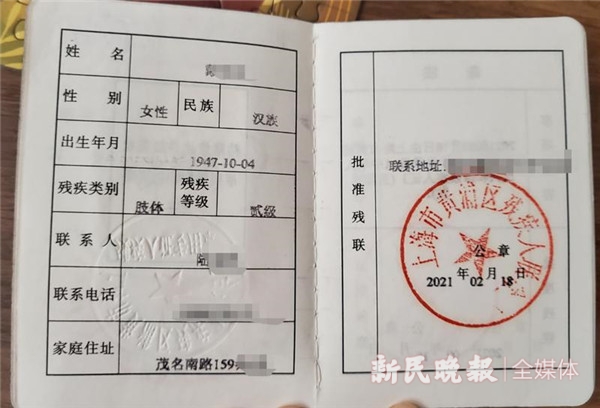 姓 名
性 别 女性 民族 汉族
出生年月 1947-10-04
残疾类别 肢体 残疾等级 贰级
联系人
联系电话
家庭住址 茂名南路159
批准残联
联系地址:
上海市黄浦区残疾人联
公 章
2021 年 02 月 18 日
新民晚报 全媒体